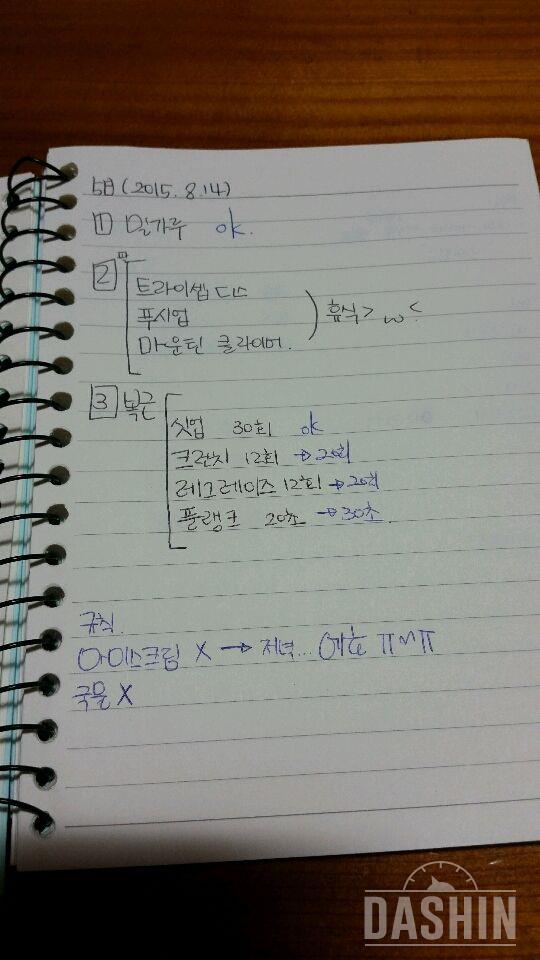 5日 (2015. 8. 14)
1 밀가루 ok.
2 트라이셉 디스
푸시업
마운틴 클라이머.
휴식 > ω <
3 복근
싯업 30회 ok
크런치 12회 → 20회
레그레이즈 12회 → 20회
플랭크 20초 → 30초.
규칙.
아이스크림 X → 저녁...
국물 X
DASHIN